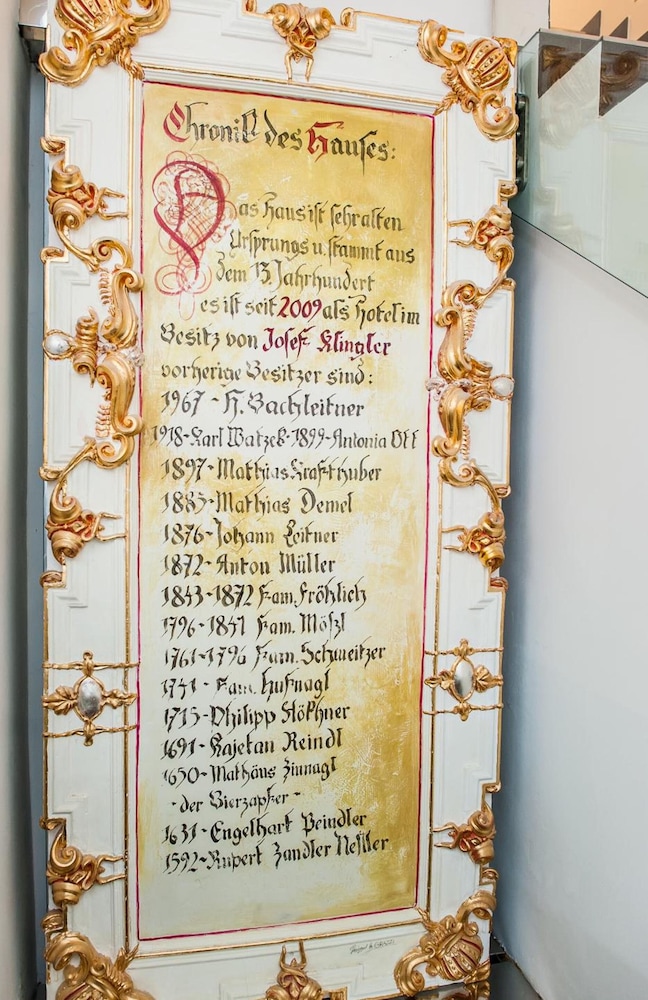 Chronik des Hauses:
Das Haus ist sehr alten
Ursprungs u. stammt aus
dem 13. Jahrhundert
es ist seit 2009 als Hotel im
Besitz von Josef Klingler
vorherige Besitzer sind:
1967 - H. Bachleitner
1918 - Karl Watzek - 1899 - Antonia Ott
1897 - Mathias Krafthuber
1885 - Mathias Demel
1876 - Johann Leitner
1872 - Anton Müller
1843 - 1872 Fam. Fröhlich
1796 - 1841 Fam. Mößl
1761 - 1796 Fam. Schweitzer
1741 - Fam. Hufnagl
1715 - Philipp Stökhner
1691 - Kajetan Reindl
1650 - Mathäus Zinnagl
- der Bierzapfer -
1631 - Engelhart Peindler
1592 - Rupert Zandler Neßler